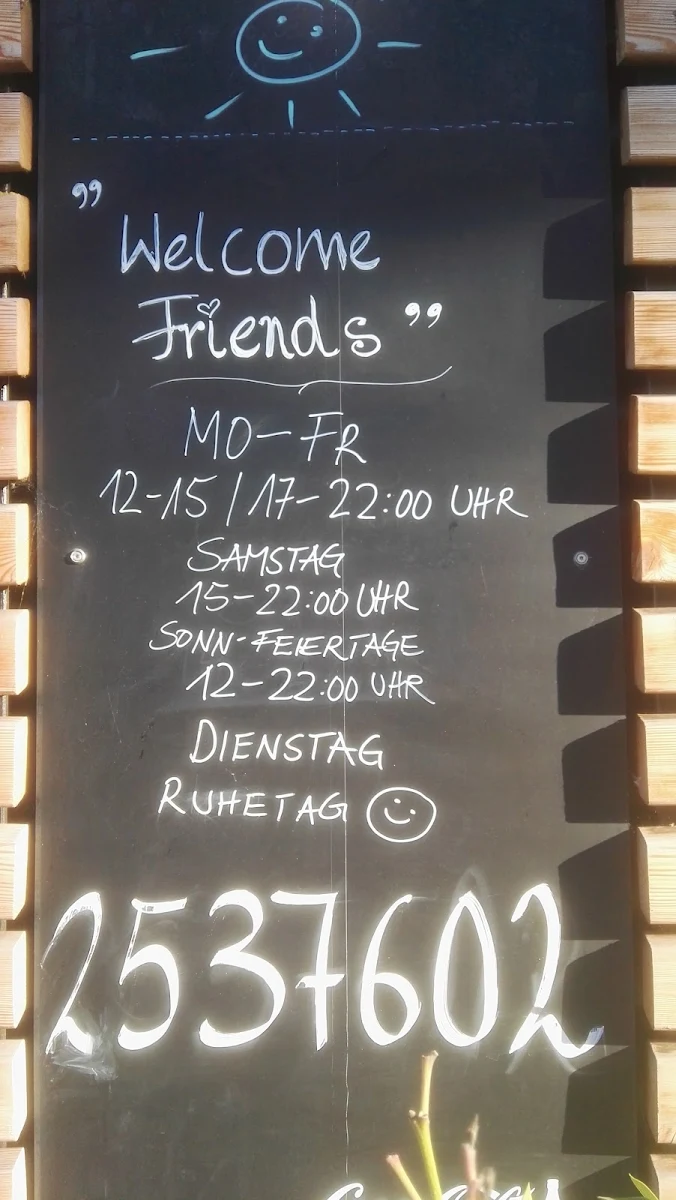 „Welcome
Friends"
MO-FR
12-15 / 17-22:00 UHR
SAMSTAG
15-22:00 UHR
SONN-FEIERTAGE
12-22:00 UHR
DIENSTAG
RUHETAG
2537602